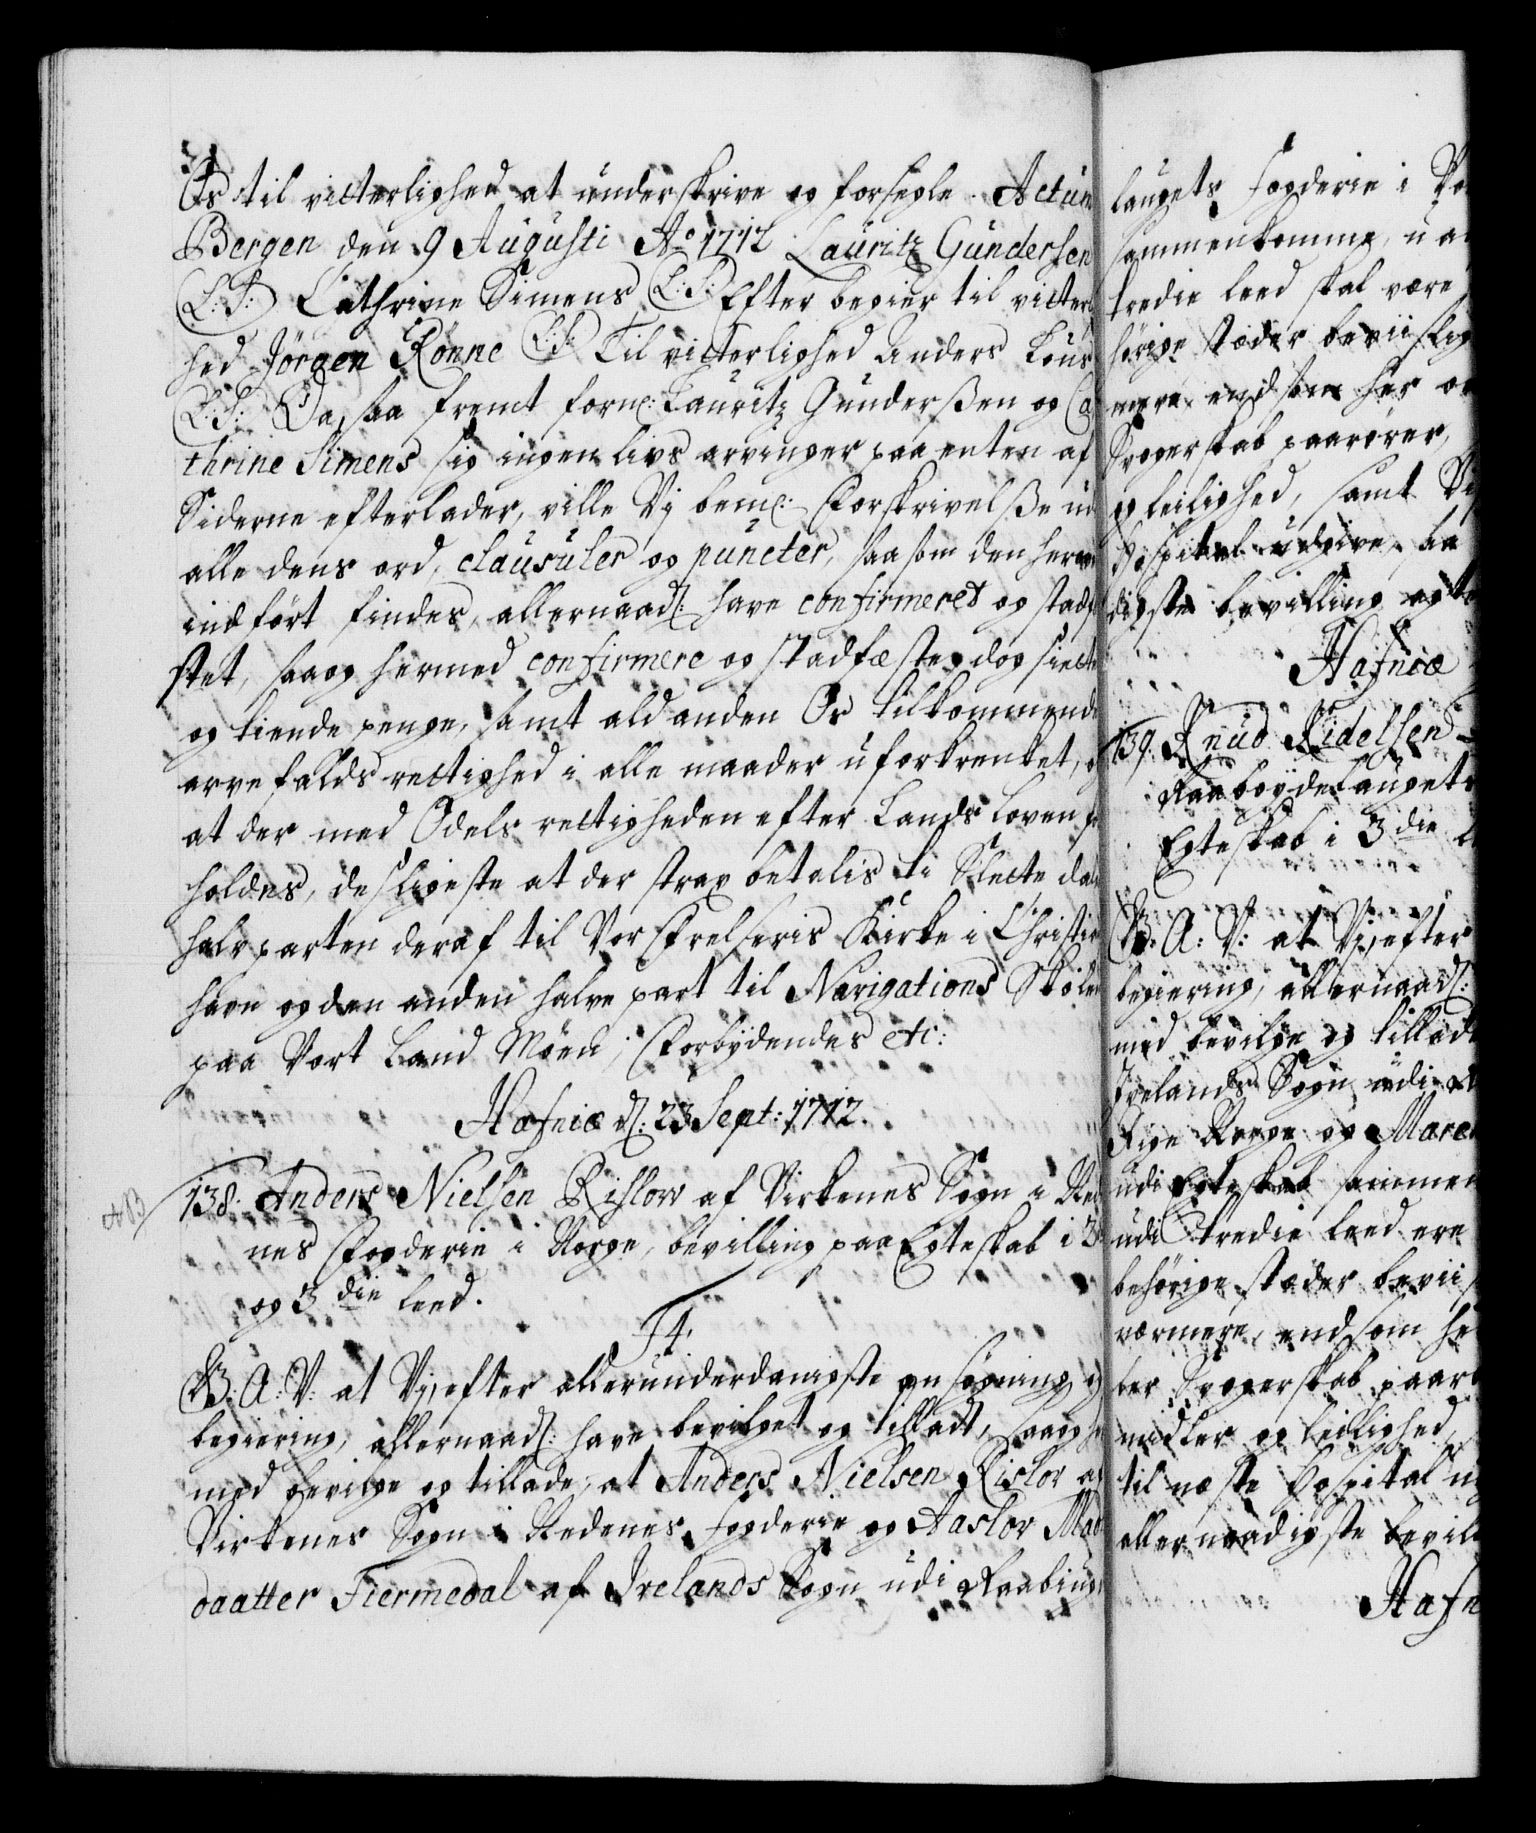 Os til vitterlighed at underskrive og forsegle. Actum
Bergen den 9 Augusti Ao 1712 Lauritz Gundersen
(L:S:) Cathrine Simens (L:S:) Efter begier til vitterlig
hed Jörgen Rönne (L:S:) Til vitterlighed Anders Lour
(L:S:) Da, saa fremt forn: Lauritz Gunderßen og Ca
thrine Simens sig ingen livs arvinger paa enten af
Siderne efterlader, ville Vj bem: Forskrivelße ud
alle dens ord, clausuler og puncter, saasom den her
indfört findes, allernaad: have confirmeret og stadf
stet, saa og hermed confirmere og stadfæste, dog siette
og tiende penge, samt ald anden Os tilkommende
arvefalds rettighed i alle maader uforkrenket, og
at der med Odels rettigheden efter Lands Loven for
holdes, desligeste at der strax betalis ti Slette daler
halvparten deraf til Vor Frelseris Kirke i Christians
havn og den anden halve part til Navigations Skolen
paa Vort Land Möen; Forbydendes etc:
Hafniæ d: 23 Sept: 1712.
138. Anders Nielsen Rislow af Virkenes Sogn i Ned
nes Fogderie i Norge, bevilling paa Egteskab i 3
og 3die Leed.
F4.
G: A: V: at Vj, efter allerunderdanigste ansögning og
begiering, allernaad: have bevilget og tilladt, saa og her
med bevilge og tillade, at Anders Nielsen Rislov af
Virkenes Sogn i Nedenes Fogderie og Aaslov Mad
daatter Fiermedal af Irelands Sogn udi Raabiugs
laugets Fogderie i No
sammenkomme, u a
tredie leed skal være
hörige stæder beviislig
mere end som her o
Svogerskab paarörer,
og leilighed, samt Vi
Hospital udgive, saa
digste bevilling og
Hafniæ
139. Knud Kidelsen
Raabygdelaugets
Egteskab i 3die
G: A: V: at Vj, efter
begiering, allernaad:
med bevilge og tillade
Irelands Sogn udi
Rige Norge og Maren
udi Egteskab sammen
udi tredie leed ere
behörige stæder bevii
nærmere, end som he
ler Svogerskab paarö
midler og leilighed,
til næste Hospital u
allernaadigste bevil
Hafn